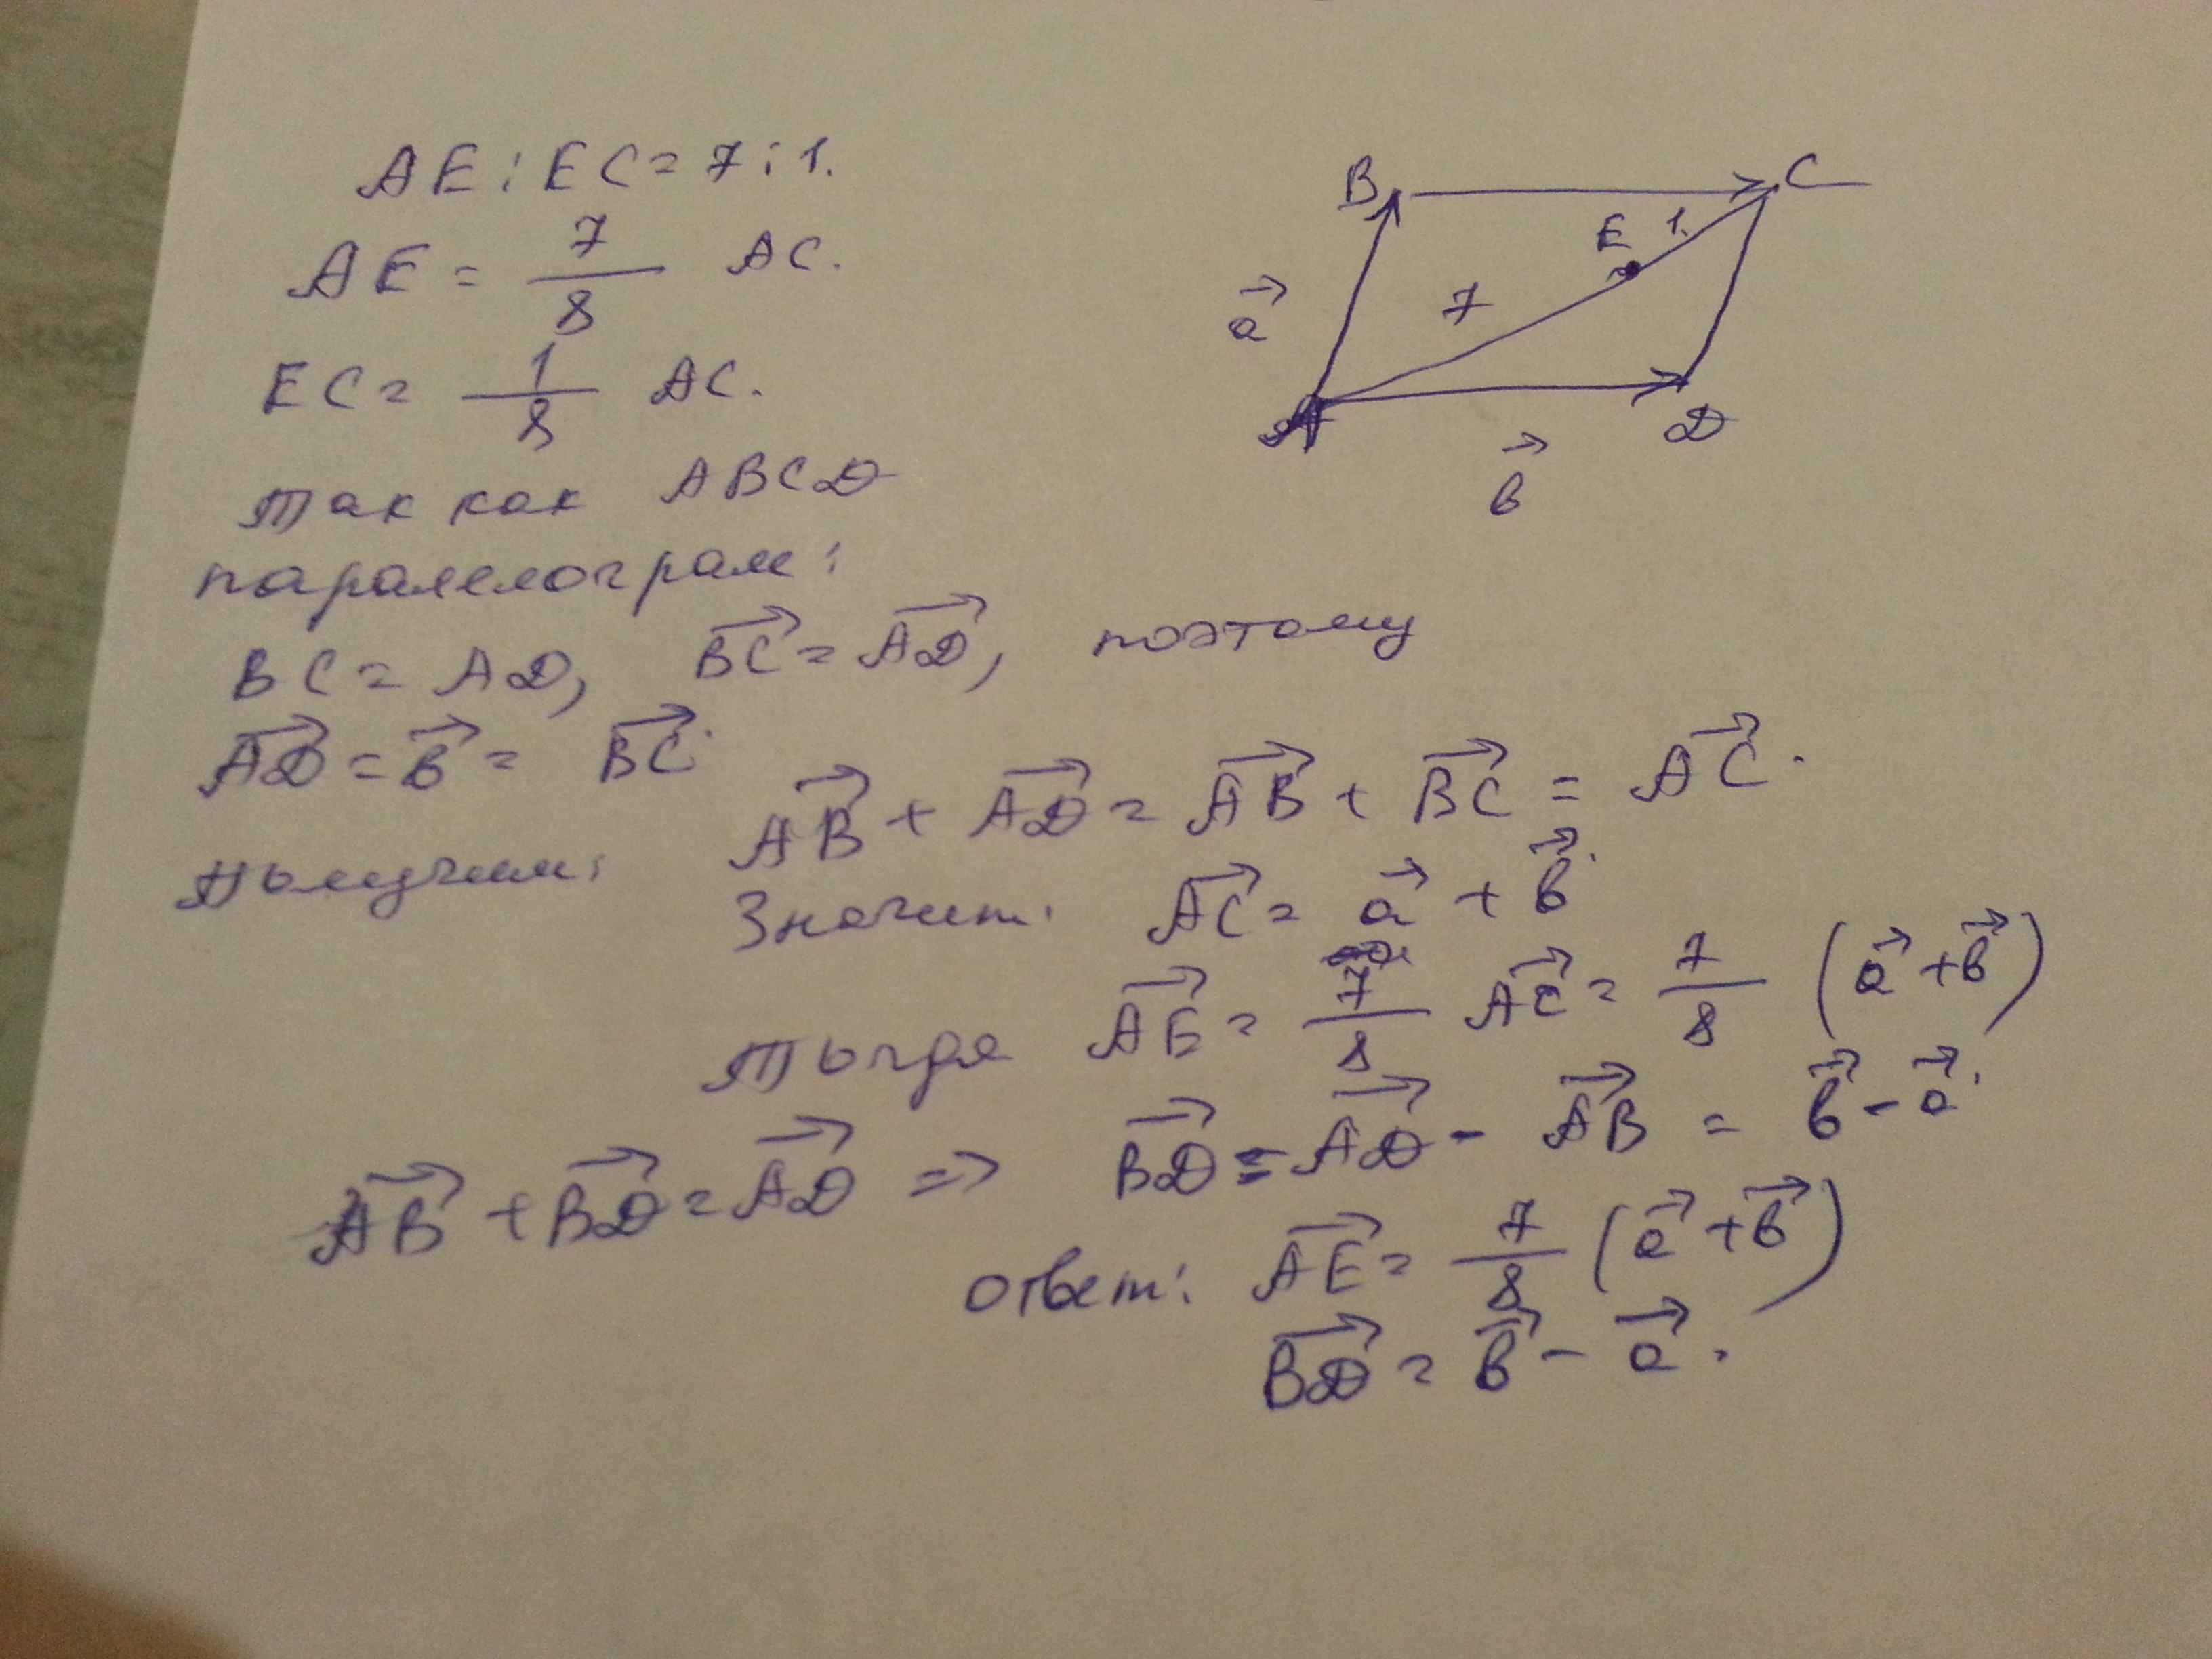 AE : EC = 7 : 1.
AE = 7/8 AC.
EC = 1/8 AC.
Так как ABCD
паралелограм:
BC = AD, \vec{BC} = \vec{AD}, поэтому
\vec{AD} = \vec{b} = \vec{BC}.
получим: \vec{AB} + \vec{AD} = \vec{AB} + \vec{BC} = \vec{AC}.
Значит: \vec{AC} = \vec{a} + \vec{b}.
Тогда \vec{AE} = 7/8 \vec{AC} = 7/8 (\vec{a} + \vec{b})
\vec{AB} + \vec{BD} = \vec{AD} => \vec{BD} = \vec{AD} - \vec{AB} = \vec{b} - \vec{a}.
Ответ: \vec{AE} = 7/8 (\vec{a} + \vec{b})
\vec{BD} = \vec{b} - \vec{a}.
B C
E 1.
7
\vec{a}
A D
\vec{b}